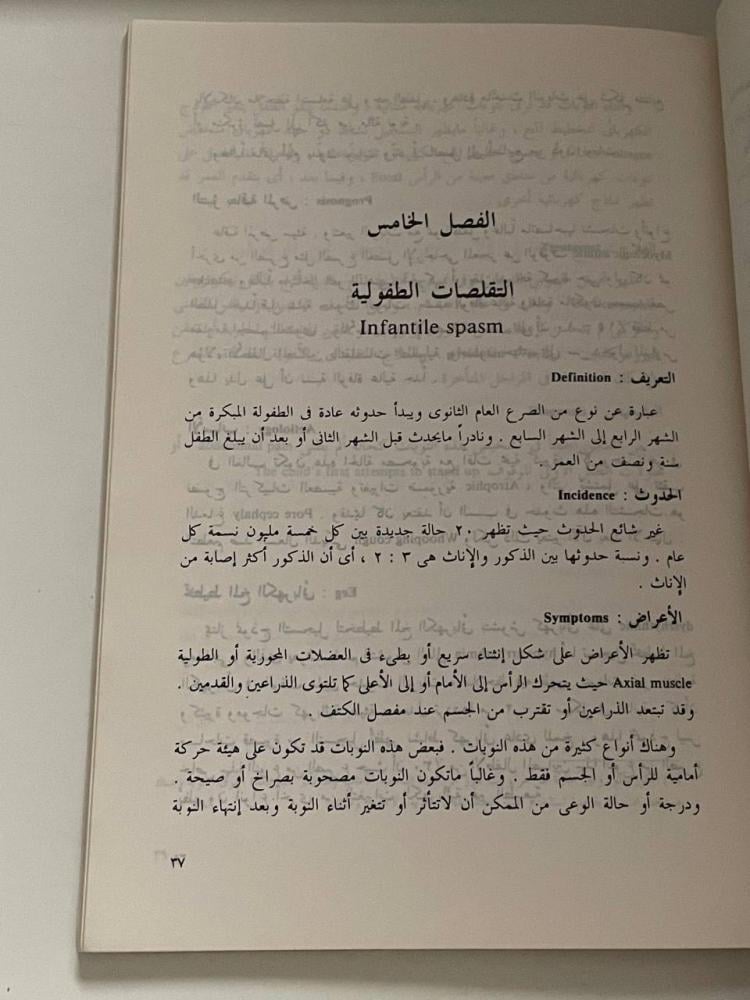 الفصل الخامس
التقلصات الطفولية
Infantile spasm
التعريف : Definition
عبارة عن نوع من الصرع العام الثانوى ويبدأ حدوثه عادة فى الطفولة المبكرة من
الشهر الرابع إلى الشهر السابع . ونادراً مايحدث قبل الشهر الثانى أو بعد أن يبلغ الطفل
سنة ونصف من العمر .
الحدوث : Incidence
غير شائع الحدوث حيث تظهر ٢٠ حالة جديدة بين كل خمسة مليون نسمة كل
عام . ونسبة حدوثها بين الذكور والإناث هى ٣ : ٢ ، أى أن الذكور أكثر إصابة من
الإناث .
الأعراض : Symptoms
تظهر الأعراض على شكل إنثناء سريع أو بطىء فى العضلات المحورية أو الطولية
Axial muscle حيث يتحرك الرأس إلى الأمام أو إلى الأعلى كما تلتوى الذراعين والقدمين .
وقد تبتعد الذراعين أو تقترب من الجسم عند مفصل الكتف .
وهناك أنواع كثيرة من هذه النوبات . فبعض هذه النوبات قد تكون على هيئة حركة
أمامية للرأس أو الجسم فقط . وغالباً ماتكون النوبات مصحوبة بصراخ أو صيحة .
ودرجة أو حالة الوعى من الممكن أن لاتتأثر أو تتغير أثناء النوبة وبعد إنتهاء النوبة
٣٧